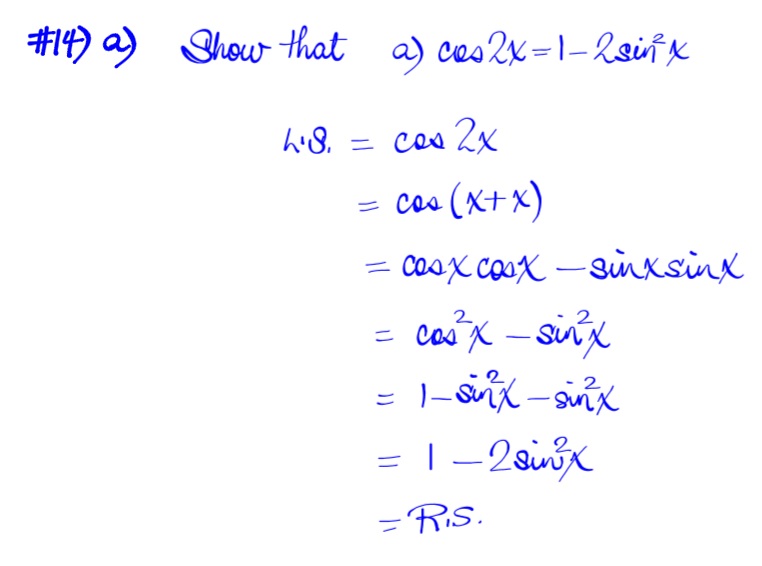 #14) a) Show that a) cos2x=1-2sin²x
L.S. = cos 2x
= cos (x+x)
= cosx cosx - sinx sinx
= cos²x - sin²x
= 1-sin²x - sin²x
= 1 - 2sin²x
= R.S.